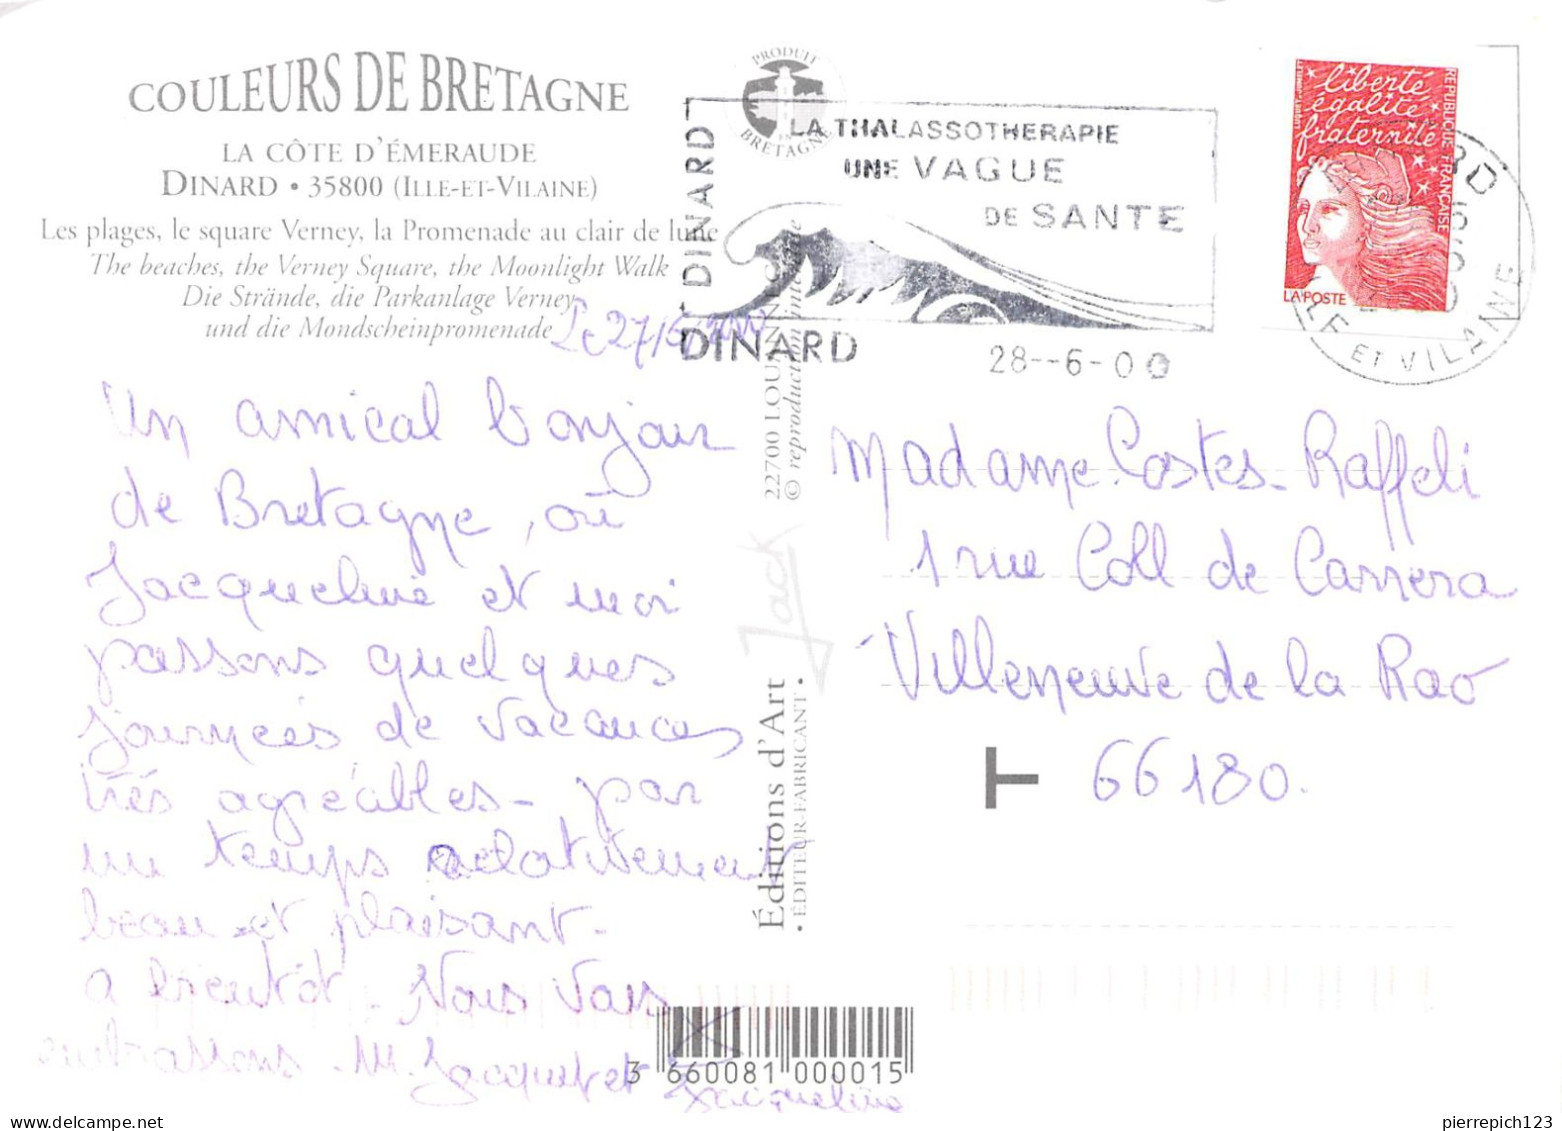 COULEURS DE BRETAGNE
LA CÔTE D'ÉMERAUDE
DINARD • 35800 (ILLE-ET-VILAINE)
Les plages, le square Verney, la Promenade au clair de lune
The beaches, the Verney Square, the Moonlight Walk
Die Strände, die Parkanlage Verney
und die Mondscheinpromenade
Le 27/6/2000
Un amical bonjour
de Bretagne, où
Jacqueline et moi
passons quelques
journées de vacances
très agréables - par
un temps relativement
beau et plaisant -
a bientôt. Nous vous
embrassons. M. Jacquet et
Jacqueline
PRODUIT
EN
BRETAGNE
DINARD
LA THALASSOTHERAPIE
UNE VAGUE
DE SANTE
DINARD
28--6-00
22700 LOUANNEC
© reproduction interdite
Jack
Éditions d'Art
• ÉDITEUR-FABRICANT •
3 660081 000015
liberté
égalité
fraternité
RÉPUBLIQUE FRANÇAISE
LA POSTE
ILLE ET VILAINE
Madame Costes-Raffeli
1 rue Coll de Carrera
Villeneuve de la Rao
66180.
T
pierrepich123